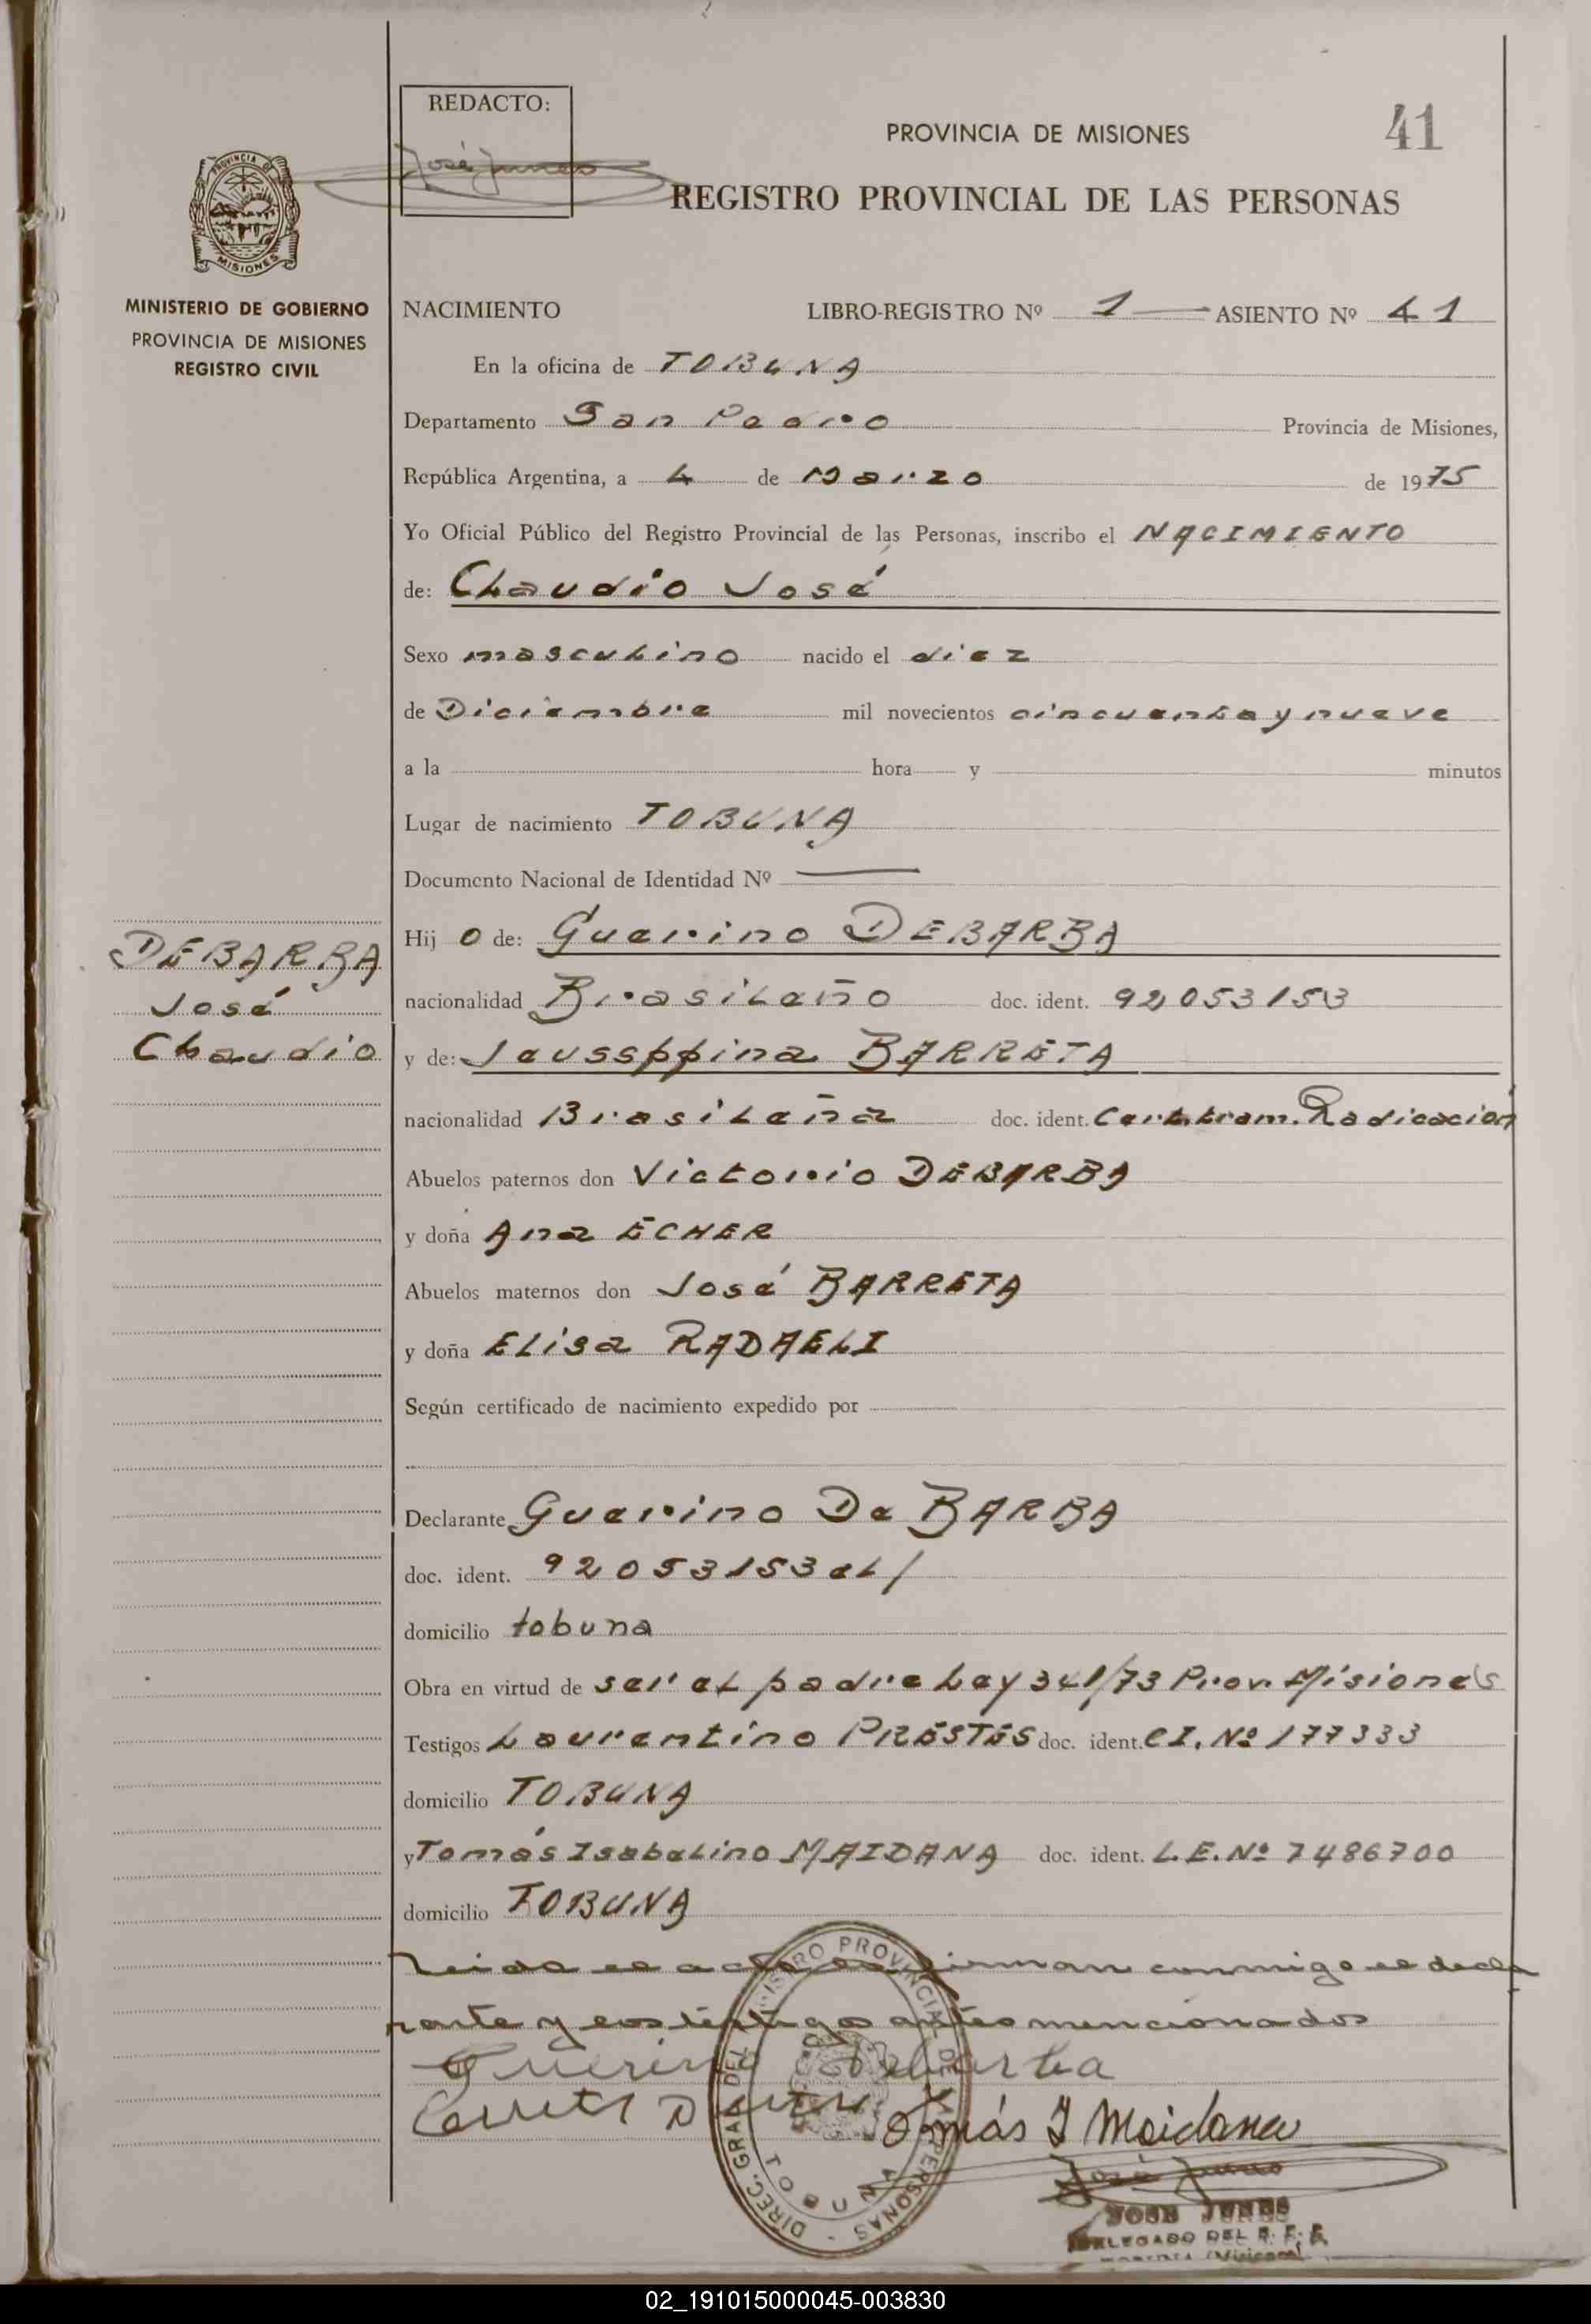 REDACTO:
José Junes
PROVINCIA DE MISIONES
41
REGISTRO PROVINCIAL DE LAS PERSONAS
PROVINCIA DE
MISIONES
MINISTERIO DE GOBIERNO
PROVINCIA DE MISIONES
REGISTRO CIVIL
NACIMIENTO LIBRO-REGISTRO Nº 1 — ASIENTO Nº 41
En la oficina de TOBUNA
Departamento San Pedro Provincia de Misiones,
República Argentina, a 4 de Marzo de 1975
Yo Oficial Público del Registro Provincial de las Personas, inscribo el NACIMIENTO
de: Claudio José
Sexo masculino nacido el diez
de Diciembre mil novecientos cincuenta y nueve
a la hora y minutos
Lugar de nacimiento TOBUNA
Documento Nacional de Identidad Nº —
Hij o de: Guerino DEBARBA
nacionalidad Brasileño doc. ident. 92053153
y de: Jeussppina BARRETA
nacionalidad Brasileña doc. ident. Cert. tram. Radicación
DEBARBA
José
Claudio
Abuelos paternos don Victorio DEBARBA
y doña Ana ECHER
Abuelos maternos don José BARRETA
y doña Elisa RADAELI
Según certificado de nacimiento expedido por
Declarante Guerino De BARBA
doc. ident. 92053153 el/
domicilio tobuna
Obra en virtud de ser el padre Ley 341/73 Prov. Misiones
Testigos Laurentino PRESTES doc. ident. CI. Nº 177333
domicilio TOBUNA
y Tomás Isabelino MAIDANA doc. ident. L.E. Nº 7486700
domicilio TOBUNA
Leida el acta la firman conmigo el decla
rante y los testigos antes mencionados
Guerino Debarba
Tomás I Maidana
DIREC. GRAL. DEL REGISTRO PROVINCIAL DE LAS PERSONAS -
TOBUNA
José Junes
JOSE JUNES
DELEGADO DEL R. P. P.
TOBUNA (Misiones)
02_191015000045-003830